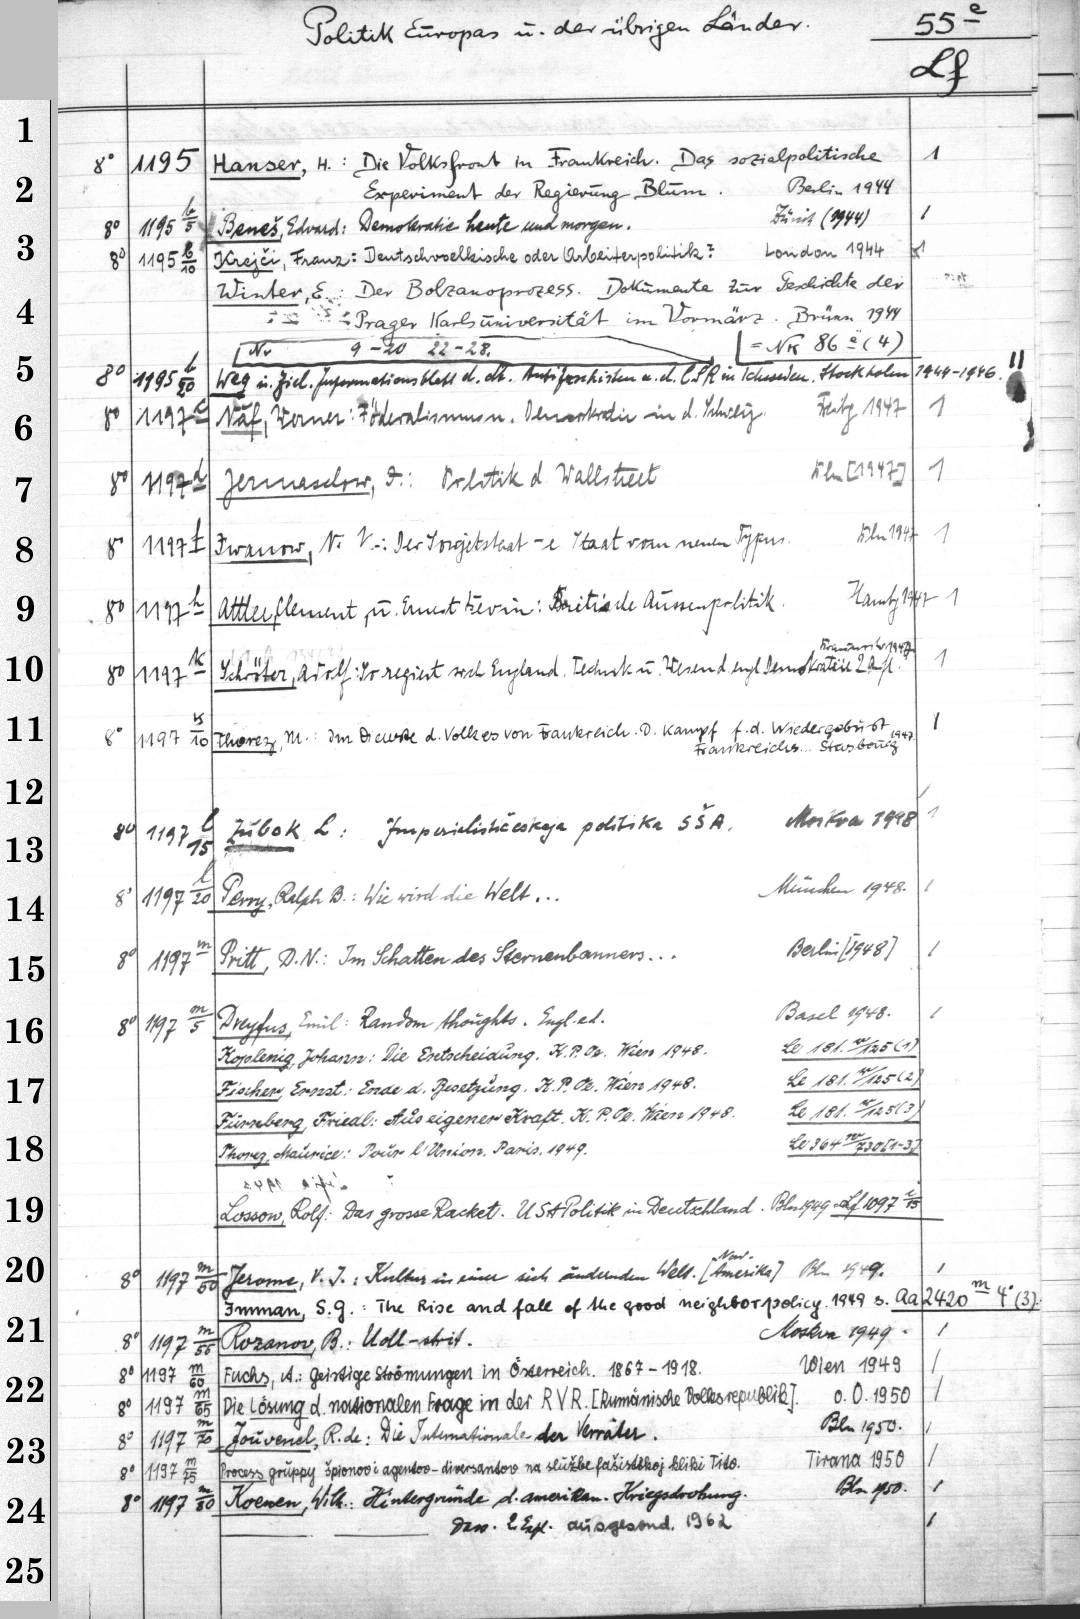 Politik Europas u. der übrigen Länder. 55 e
Lf
1
8° 1195 Hanser, H.: Die Volksfront in Frankreich. Das sozialpolitische 1
2 Experiment der Regierung Blum. Berlin 1944
8° 1195 b/5 Beneš, Edvard: Demokratie heute und morgen. Zürich (1944) 1
3 8° 1195 b/10 Krejči, Franz: Deutschvoelkische oder Arbeiterpolitik? London 1944 1
Winter, E.: Der Bolzanoprozess. Dokumente zur Geschichte der
4 Prager Karlsuniversität im Vormärz. Brünn 1944
Nr 9-20 22-28. = NK 86 e (4)
5 8° 1195 b/20 Weg u. Ziel. Informationsblatt d. dt. Antifaschisten a. d. ČSR in Schweden. Stockholm 1944-1946. 11
6 8° 1197 c Näf, Werner: Föderalismus u. Demokratie in d. Schweiz. 1947 1
7 8° 1197 d Jermaschow, I.: Politik d Wallstreet Bln [1947] 1
8 8° 1197 f Iwanow, N. V.: Der Sowjetstaat - e Staat vom neuen Typus. Bln 1947 1
9 8° 1197 h Attlee, Clement, u. Ernest Bevin: Britische Aussenpolitik. Hambg 1947 1
10 8° 1197 k Schröter, Adolf: So regiert sich England. Technik u. Wesen d. engl Demokratie 2. Aufl. 1947 1
11 8° 1197 k/10 Thorez, M.: Im Dienste d. Volkes von Frankreich. D. Kampf f. d. Wiedergeburt 1
Frankreichs... Strasbourg 1947
12
8° 1197 l/15 Zubok L: Imperialističeskaja politika SŠA. Moskva 1948 1
13
14 8° 1197 l/20 Perry, Ralph B.: Wie wird die Welt... München 1948. 1
15 8° 1197 m Pritt, D.N.: Im Schatten des Sternenbanners... Berlin [1948] 1
16 8° 1197 m/5 Dreyfus, Emil: Random thoughts. Engl. ed. Basel 1948. 1
Koplenig, Johann: Die Entscheidung. K.P.Oe. Wien 1948. Le 181. w/125(1)
17 Fischer, Ernst: Ende d. Besetzung. K.P.Oe. Wien 1948. Le 181. w/125(2)
Fürnberg, Friedl: Aus eigener Kraft. K.P.Oe. Wien 1948. Le 181. w/125(3)
18 Thorez, Maurice: Pour l'Union. Paris. 1949. Le 364 w/730[1-3]
19 Lossow, Rolf: Das grosse Racket. USA Politik in Deutschland. Bln 1949 = Lf 1097 c/15
20 8° 1197 m/50 Jerome, V. J.: Kultur in einer sich ändernden Welt. [Nord-Amerika] Bln 1949. 1
Inman, S.G.: The Rise and fall of the good neighbor policy. 1949 s. Aa 2420 m 4° (3)
21 8° 1197 m/55 Rozanov, B.: Uoll-strit. Moskva 1949. 1
8° 1197 m/60 Fuchs, A.: Geistige Strömungen in Österreich. 1867-1918. Wien 1949 1
22 8° 1197 m/65 Die Lösung d. nationalen Frage in der RVR. [Rumänische Volksrepublik]. o. O. 1950 1
8° 1197 m/70 Jouvenel, R. de: Die Internationale der Verräter. Bln 1950. 1
23 8° 1197 m/75 Process gruppy špionov i agentov-diversantov na službe fašistskoj kliki Tito. Tirana 1950 1
24 8° 1197 m/80 Koenen, Wilh.: Hintergründe d. amerikan. Kriegsdrohung. Bln 1950. 1
Dass. 2. Expl. ausgesond. 1962 1
25